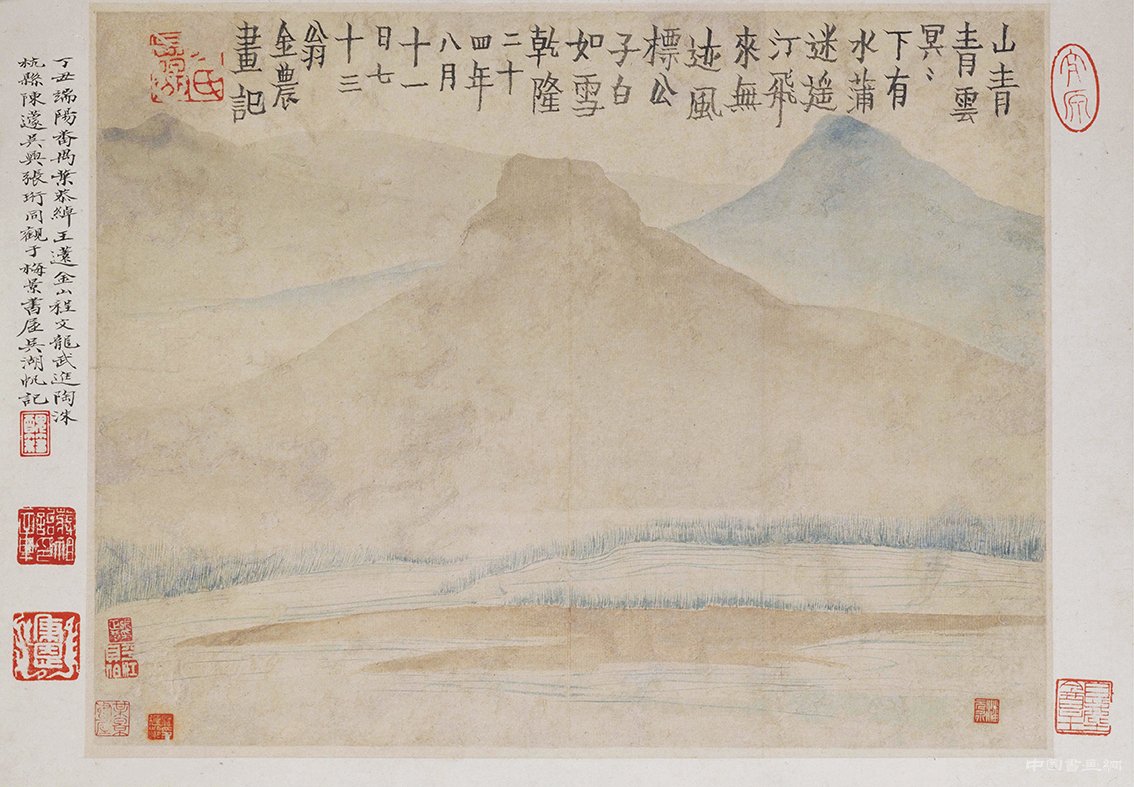 山青
青雲
冥〻
下有
水蒲
迷遥
汀飛
來無
迹風
標公
子白
如雪
乾隆
二十
四年
八月
十一
日七
十三
翁
金農
畫記
丁丑端陽番禺葉恭綽王薳金山程文龍武進陶洙
杭縣陳吳興張珩同觀于梅景書屋吳湖帆記
中国書画網